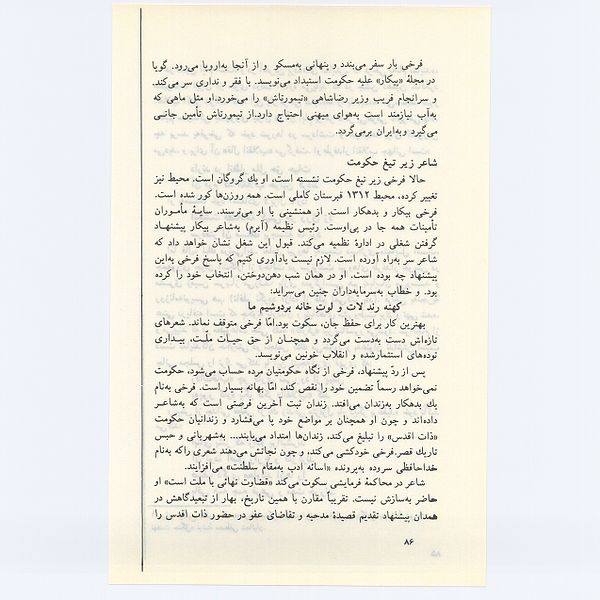 فرخی بار سفر می‌بندد و پنهانی به‌مسکو و از آنجا به‌اروپا می‌رود. گویا
در مجلهٔ «پیکار» علیه حکومت استبداد می‌نویسد. با فقر و نداری سر می‌کند.
و سرانجام فریب وزیر رضاشاهی «تیمورتاش» را می‌خورد.او مثل ماهی که
به‌آب نیازمند است به‌هوای میهنی احتیاج دارد.از تیمورتاش تأمین جانی
می‌گیرد و به‌ایران برمی‌گردد.
شاعر زیر تیغ حکومت
حالا فرخی زیر تیغ حکومت نشسته است، او یك گروگان است. محیط نیز
تغییر کرده، محیط ۱۳۱۲ قبرستان کاملی است. همه روزن‌ها کور شده است.
فرخی بیکار و بدهکار است. از همنشینی با او می‌ترسند. سایهٔ مأموران
تأمینات همه جا در پی‌اوست. رئیس نظیمه (آیرم) به‌شاعر بیکار پیشنهاد
گرفتن شغلی در ادارهٔ نظمیه می‌کند. قبول این شغل نشان خواهد داد که
شاعر سر به‌راه آورده است. لازم نیست یادآوری کنیم که پاسخ فرخی به‌این
پیشنهاد چه بوده است. او در همان شب دهن‌دوختن، انتخاب خود را کرده
بود. و خطاب به‌سرمایه‌داران چنین می‌سراید:
کهنه رند لات و لوتِ خانه بردوشیم ما
بهترین کار برای حفظ جان، سکوت بود.امّا فرخی متوقف نماند. شعرهای
تازه‌اش دست به‌دست می‌گردد و همچنان از حق حیات ملّت، بیداری
توده‌های استثمارشده و انقلاب خونین می‌نویسد.
پس از ردّ پیشنهاد، فرخی از نگاه حکومتیان مرده حساب می‌شود، حکومت
نمی‌خواهد رسماً تضمین خود را نقض کند، امّا بهانه بسیار است. فرخی به‌نام
یك بدهکار به‌زندان می‌افتد. زندان ثبت آخرین فرصتی است که به‌شاعر
داده‌اند و چون او همچنان بر مواضع خود پا می‌فشارد و زندانیان حکومت
«ذات اقدس» را تبلیغ می‌کند، زندان‌ها امتداد می‌یابند... به‌شهربانی و حبس
تاریك قصر.فرخی خودکشی می‌کند، و چون نجاتش می‌دهند شعری راکه به‌نام
خداحافظی سروده به‌پرونده «اسائه ادب به‌مقام سلطنت» می‌افزایند.
شاعر در محاکمهٔ فرمایشی سکوت می‌کند «قضاوت نهائی با ملت است» او
حاضر به‌سازش نیست. تقریباً مقارن با همین تاریخ، بهار از تبعیدگاهش در
همدان پیشنهاد تقدیم قصیدهٔ مدحیه و تقاضای عفو در حضور ذات اقدس را
۸۶